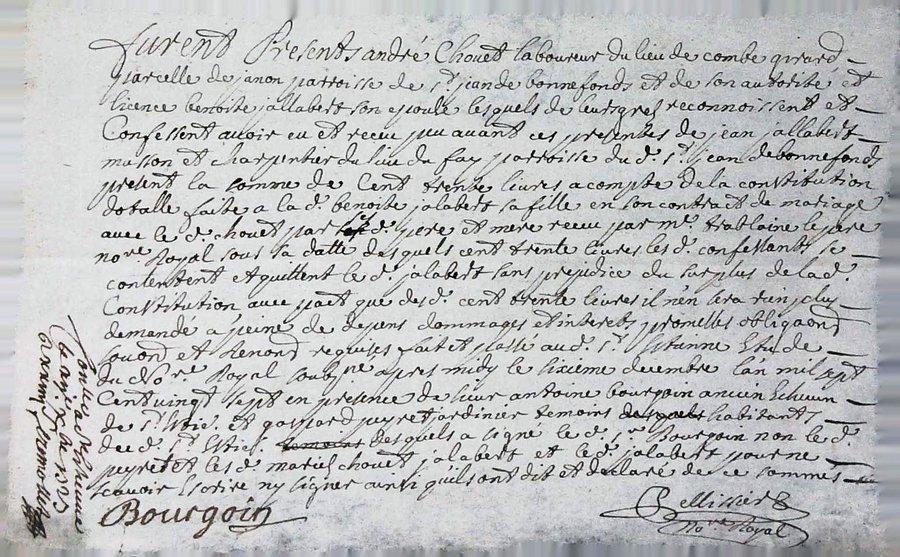 furent Presents andré Chouet laboureur du lieu de combe girard
parcelle de janon parroisse de st. jean de bonnefonds et de son autorité et
licence benoite jallabert son epouse lesquels de leurs gres reconnoissent et
Confessent avoir eu et recu puv avant ces presentes de jean jallabert
masson et charpentier du lieu du fay parroisse du d. st. jean de bonnefonds
present la somme de Cent trente livres a compte de la constitution
dotalle faite a la d. benoite jalabert sa fille en son contract de mariage
avec le d. chouet par les d. pere et mere recu par me. trablaine le pere
nore. Royal sous sa datte desquels cent trente livres les d. confessants se
contentent et quittent le d. jalabert sans prejudice du surplus de la d.
Constitution avec pact que des d. cent trente livres il n'en sera rien plus
demandé a peine de depens dommages et interets promettes obligeond
soumond et Renond requises fait et passé au d. st. Etienne Etude
du Nore. Royal soubsne apres midy le sixième decembre lan mil sept
Cent vingt sept en presence de sieur antoine bourgoin ancien Echevin
de st. Etie. et gaspard peyret jardinier temoins habitants
du d. st. Etie. desquels a signé le d. sr. Bourgoin non le d.
peyret et les d. mariés chouet jalabert et le d. jalabert pour ne
scavoir Escrire ny signer ainsi quils ont dit et declaré de ce sommés
Bourgoin
Pellissier
Nore. Royal
Con. les a st Estienne